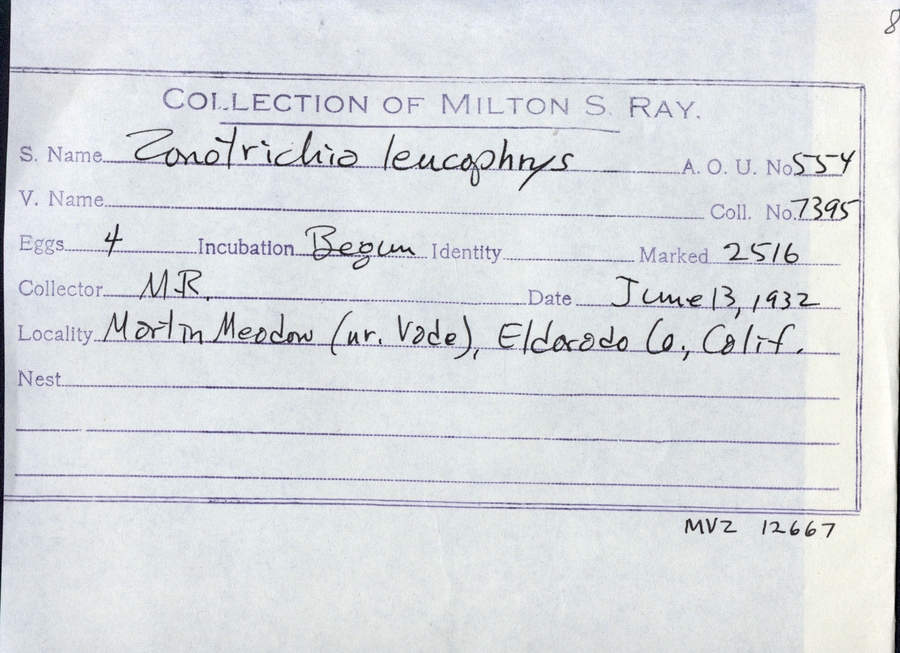 8
COLLECTION OF MILTON S. RAY.
S. Name Zonotrichia leucophrys A. O. U. No. 554
V. Name Coll. No. 7395
Eggs 4 Incubation Begun Identity Marked 2516
Collector M.R. Date June 13, 1932
Locality Martin Meadow (nr. Vade), Eldorado Co., Calif.
Nest
MVZ 12667